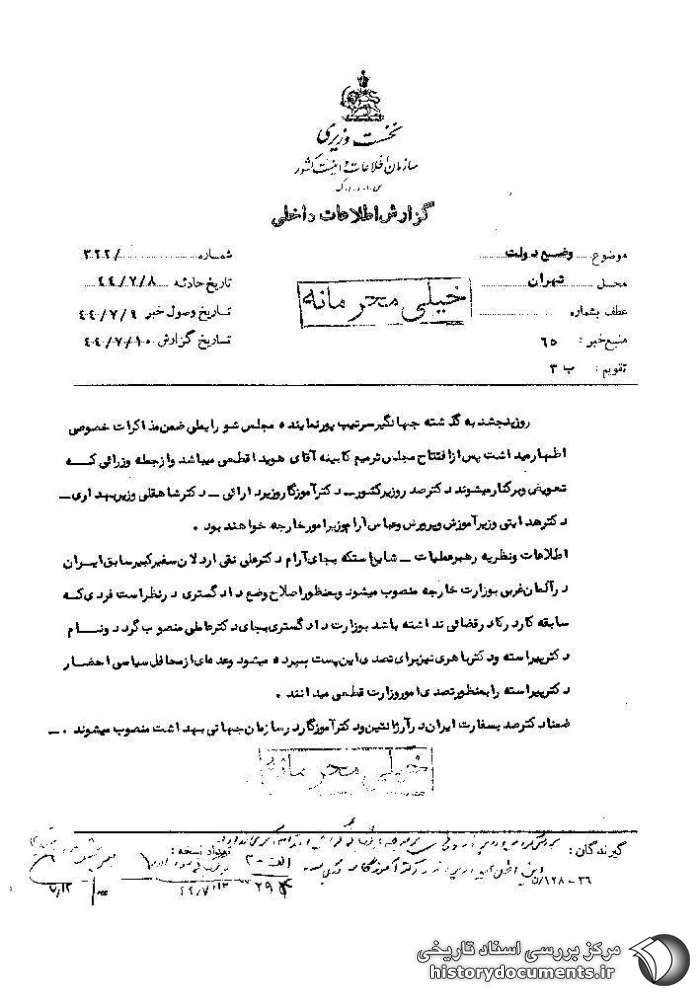 نخست وزیری
سازمان اطلاعات و امنیت کشور
س.ا.و.ا.ک
گزارش اطلاعات داخلی
موضوع وضع دولت
شماره ۳۲۲/
محل تهران
تاریخ حادثه ۴۴/۷/۸
خیلی محرمانه
عطف بشماره
تاریخ وصول خبر ۴۴/۷/۹
منبع خبر : ۶۵
تاریخ گزارش ۴۴/۷/۱۰
تقویم : ب ۳
روز پنجشنبه گذشته جهانگیر سرتیپ پور نماینده مجلس شورایملی ضمن مذاکرات خصوصی
اظهار میداشت پس از افتتاح مجلس ترمیم کابینه آقای هویدا قطعی میباشد و از جمله وزرائی که
تعویض و برکنار میشوند دکتر صدر وزیر کشور ـ دکتر آموزگار وزیر دارائی ـ دکتر شاهقلی وزیر بهداری ـ
دکتر هدایتی وزیر آموزش و پرورش و عباس آرام وزیر امور خارجه خواهند بود .
اطلاعات و نظریه رهبر عملیات ـ شایع استکه بجای آرام دکتر علی نقی اردلان سفیر کبیر سابق ایران
در آلمان غربی بوزارت خارجه منصوب میشود و بمنظور اصلاح وضع دادگستری در نظر است فردی که
سابقه کار در کادر قضائی نداشته باشد بوزارت دادگستری بجای دکتر عاملی منصوب گردد و نام
دکتر پیراسته و دکتر باهری نیز برای تصدی این پست بسپرده میشود و عده ای از محافل سیاسی احضار
دکتر پیراسته را بمنظور تصدی امور وزارت قطعی میدانند .
ضمنا دکتر صدر بسفارت ایران در آرژانتین و دکتر آموزگار در سازمان جهانی بهداشت منصوب میشوند . ـ
خیلی محرمانه
گیرندگان :
تعداد نسخه :
الف-۲۰
۴۴/۷/۱۳
۷/۱۲
مرکز بررسی اسناد تاریخی
historydocuments.ir